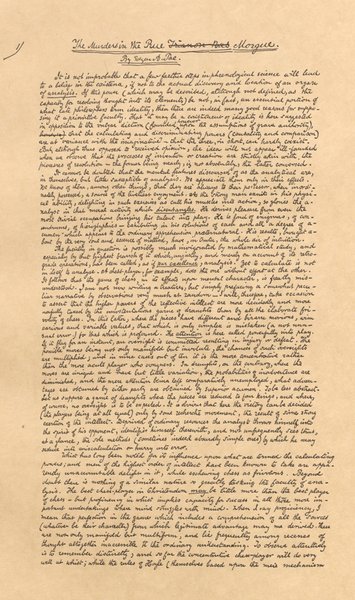 The Murders in the Rue Trianon Bas Morgue.
By Edgar A. Poe.
It is not improbable that a few farther steps in phrenological science will lead
to a belief in the existence, if not to the actual discovery and location of an organ
of analysis. If this power (which may be described, although not defined, as the
capacity for resolving thought into its elements) be not, in fact, an essential portion of
what late philosophers term ideality, then there are indeed many good reasons for suppos-
ing it a primitive faculty. That it may be a constituent of ideality is here suggested
in opposition to the vulgar dictum (founded, however, upon the assumptions of grave authority,)
that the calculating and discriminating powers (causality and comparison)
are at variance with the imaginative — that the three, in short, can hardly coexist.
But, although thus opposed to received opinion, the idea will not appear ill-founded
when we observe that the processes of invention or creation are strictly akin with the
processes of resolution — the former being nearly, if not absolutely, the latter conversed.
It cannot be doubted that the mental features discoursed of as the analytical are,
in themselves, but little susceptible of analysis. We appreciate them only in their effects.
We know of them, among other things, that they are always to their possessor, when inord-
inately possessed, a source of the liveliest enjoyment. As the strong man exults in his physic-
al ability, delighting in such exercises as call his muscles into action, so glories the a-
nalyst in that moral activity which disentangles. He derives pleasure from even the
most trivial occupations bringing his talent into play. He is fond of enigmas, of con-
undrums, of hieroglyphics — exhibiting in his solutions of each and all a degree of a-
cumen which appears to the ordinary apprehension præternatural. His results, brought a-
bout by the very soul and essence of method, have, in truth, the whole air of intuition.
The faculty in question is possibly much invigorated by mathematical study, and
especially by that highest branch of it which, unjustly, and merely on account of its retro-
grade operations, has been called, as if par excellence, analysis. Yet to calculate is not
in itself to analyse. A chess-player, for example, does the one without effort at the other.
It follows that the game of chess, in its effects upon mental character, is greatly mis-
understood. I am not now writing a treatise, but simply prefacing a somewhat pecu-
liar narrative by observations very much at random — I will, therefore, take occasion
to assert that the higher powers of the reflective intellect are more decidedly and more
usefully tasked by the unostentatious game of draughts than by all the elaborate friv-
olity of chess. In this latter, where the pieces have different and bizarre motions, with
various and variable values, that which is only complex is mistaken (a not unus-
ual error) for that which is profound. The attention is here called powerfully into play.
If it flag for an instant, an oversight is committed resulting in injury or defeat. The
possible moves being not only manifold but involute, the chances of such oversights
are multiplied; and in nine cases out of ten it is the more concentrative rather
than the more acute player who conquers. In draughts, on the contrary, where the
moves are unique and have but little variation, the probabilities of inadvertence are
diminished, and the mere attention being left comparatively unemployed, what advan-
tages are obtained by either party are obtained by superior acumen. To be less abstract —
Let us suppose a game of draughts where the pieces are reduced to four kings, and where,
of course, no oversight is to be expected. It is obvious that here the victory can be decided
(the players being at all equal) only by some recherché movement, the result of some strong
exertion of the intellect. Deprived of ordinary resources the analyst throws himself into
the spirit of his opponent, identifies himself therewith, and not unfrequently sees thus,
at a glance, the sole methods (sometimes indeed absurdly simple ones) by which he may
seduce into miscalculation or hurry into error.
Whist has long been noted for its influence upon what are termed the calculating
powers; and men of the highest order of intellect have been known to take an appa-
rently unaccountable delight in it, while eschewing chess as frivolous. Beyond
doubt there is nothing of a similar nature so greatly tasking the faculty of ana-
lysis. The best chess-player in Christendom may be little more than the best player
of chess — but proficiency in whist implies capacity for success in all these more im-
portant undertakings where mind struggles with mind. When I say proficiency, I
mean that perfection in the game which includes a comprehension of all the sources
(whatever be their character) from which legitimate advantage may be derived. These
are not only manifold but multiform, and lie frequently among recesses of
thought altogether inaccessible to the ordinary understanding. To observe attentively
is to remember distinctly; and so far the concentrative chess-player will do very
well at whist; while the rules of Hoyle (themselves based upon the mere mechanism